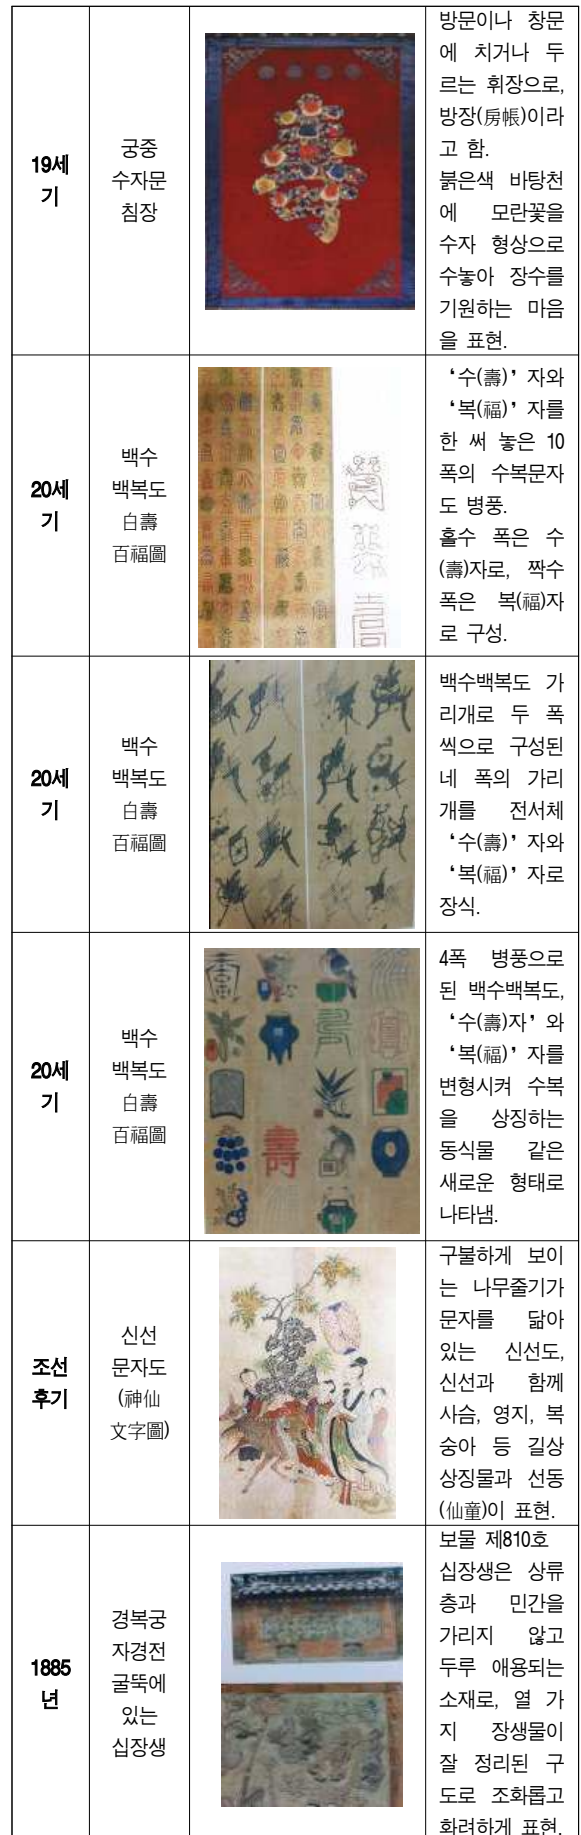 19세
기
궁중
수자문
침장
방문이나 창문
에 치거나 두
르는 휘장으로,
방장(房帳)이라
고 함.
붉은색 바탕천
에 모란꽃을
수자 형상으로
수놓아 장수를
기원하는 마음
을 표현.
20세
기
백수
백복도
白壽
百福圖
‘수(壽)’자와
‘복(福)’자를
한 써 놓은 10
폭의 수복문자
도 병풍.
홀수 폭은 수
(壽)자로, 짝수
폭은 복(福)자
로 구성.
20세
기
백수
백복도
白壽
百福圖
백수백복도 가
리개로 두 폭
씩으로 구성된
네 폭의 가리
개를 전서체
‘수(壽)’자와
‘복(福)’자로
장식.
20세
기
백수
백복도
白壽
百福圖
壽
4폭 병풍으로
된 백수백복도,
‘수(壽)자’와
‘복(福)’자를
변형시켜 수복
을 상징하는
동식물 같은
새로운 형태로
나타냄.
조선
후기
신선
문자도
(神仙
文字圖)
구불하게 보이
는 나무줄기가
문자를 닮아
있는 신선도,
신선과 함께
사슴, 영지, 복
숭아 등 길상
상징물과 선동
(仙童)이 표현.
1885
년
경복궁
자경전
굴뚝에
있는
십장생
보물 제810호
십장생은 상류
층과 민간을
가리지 않고
두루 애용되는
소재로, 열 가
지 장생물이
잘 정리된 구
도로 조화롭고
화려하게 표현.